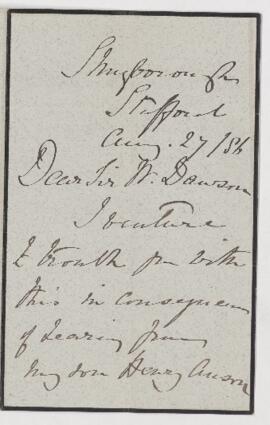 Shugborough
Stafford
Aug. 27/86
Dear Sir W. Dawson
I venture
to trouble you with
this in consequence
of hearing from
my son Henry Anson